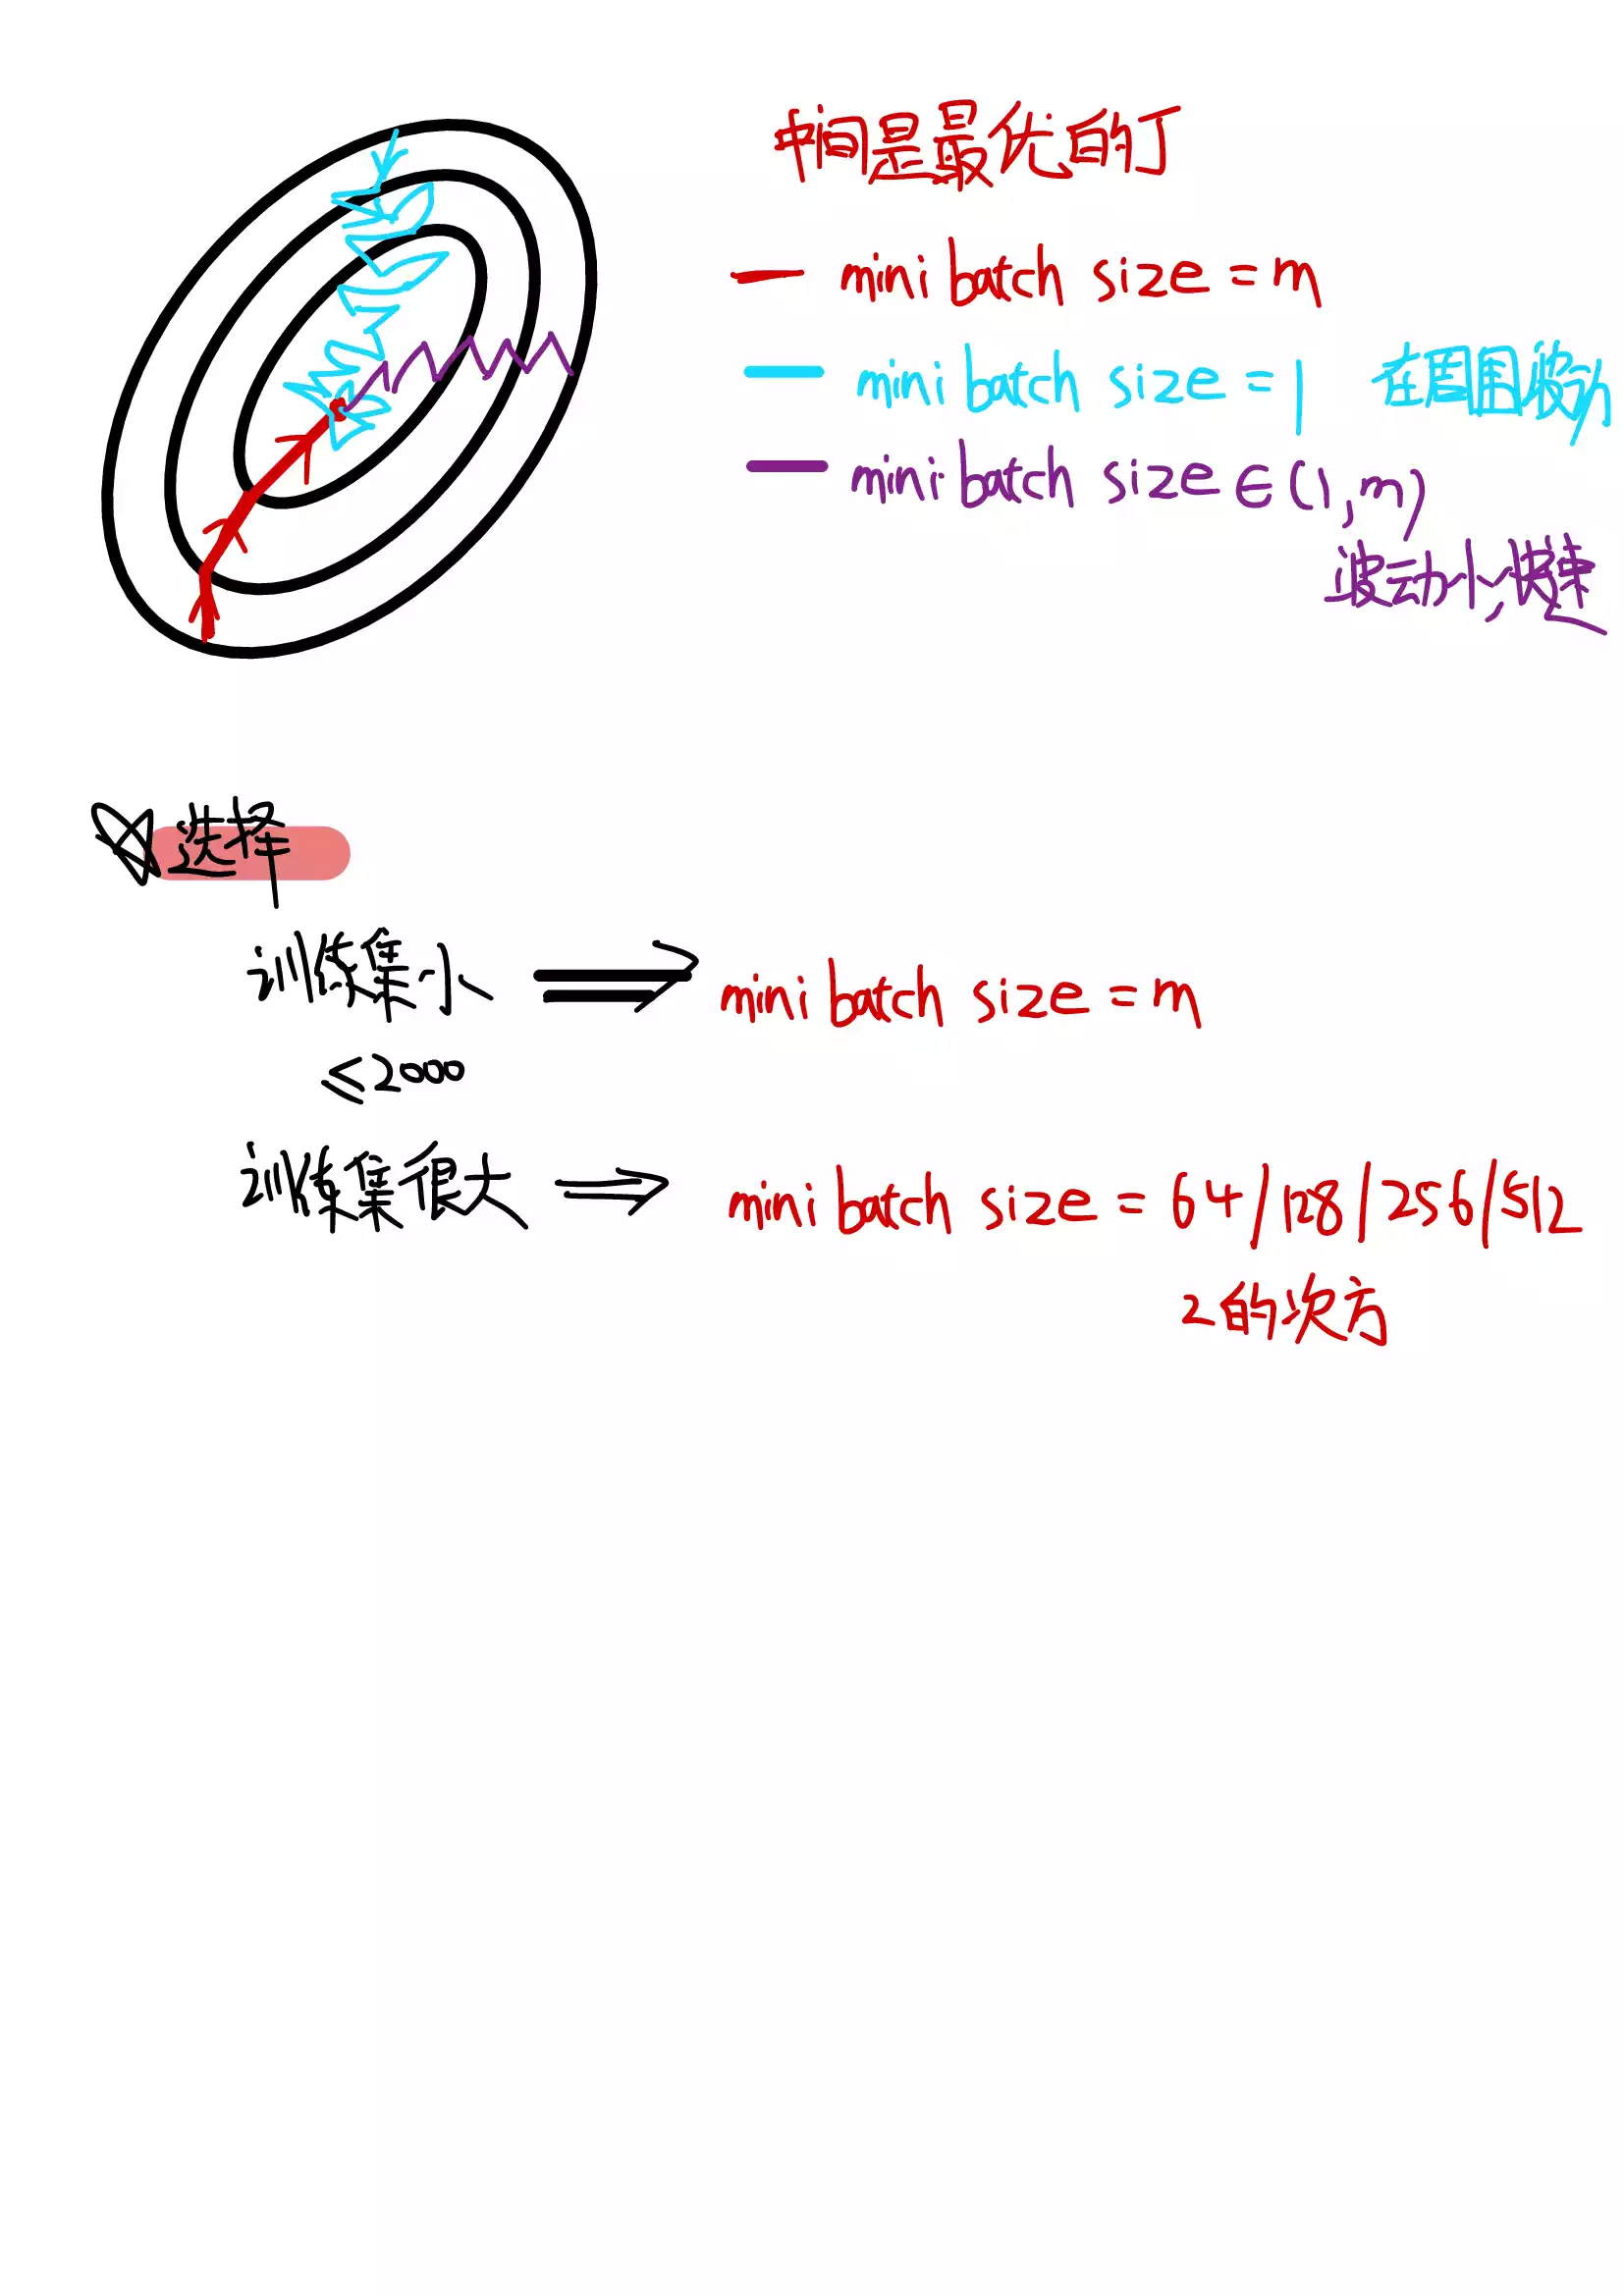 中间是最优的J
mini batch size = m
mini batch size = 1 在周围波动
mini batch size ∈ (1, m)
波动小,快速
选择
训练集小 ⟹ mini batch size = m
≤2000
训练集很大 ⟹ mini batch size = 64/128/256/512
2的次方